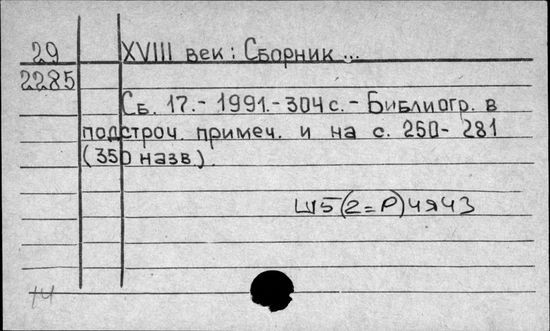 29 XVIII век: Сборник ...
2285
Сб. 17.- 1991.- 304 с. - Библиогр. в
подстроч. примеч. и на с. 250- 281
(350 назв.)
Ш5(2=Р)4я43
14